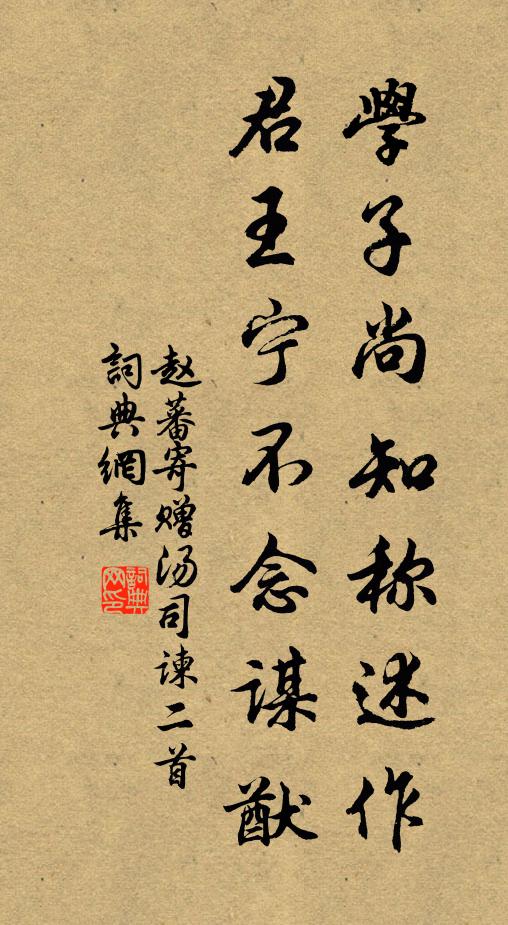 學子尚知称述作
君王宁不念謀猷
赵蕃寄赠汤司諫二首
詞典網集
詞典
网印